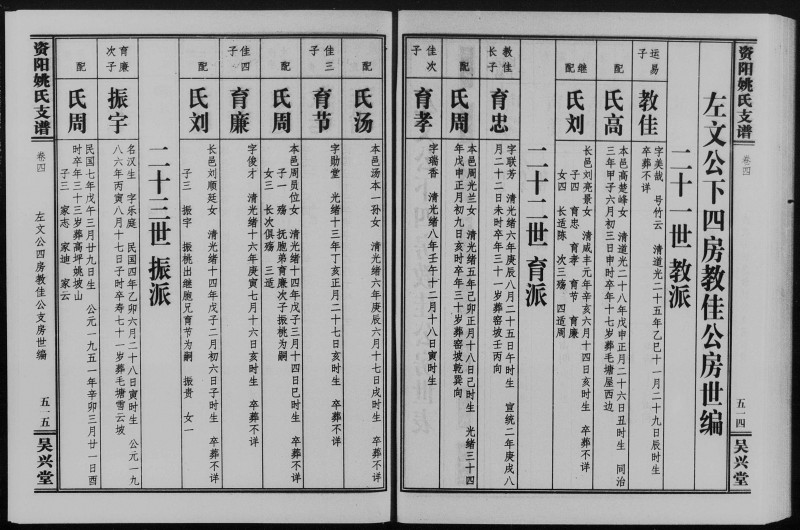 资阳姚氏支谱
卷四
五一四
吴兴堂
左文公下四房教佳公房世编
二十一世 教派
运易
子
教佳
字美哉 号竹云 清道光二十五年乙巳十一月二十九日辰时生
卒葬不详
配
氏高
本邑高楚峰女 清道光二十八年戊申正月二十六日丑时生 同治
三年甲子六月初三日申时卒年十七岁葬毛塘屋西边
继
配
氏刘
长邑刘亮景女 清咸丰元年辛亥六月十四日亥时生 卒葬不详
子四 育忠 育孝 育节 育廉
女四 长适陈 次三殇 四适周
二十二世 育派
教佳
长子
育忠
字联芳 清光绪六年庚辰八月二十五日午时生 宣统二年庚戌八
月二十二日未时卒年三十一岁葬窑坡壬丙向
配
氏周
本邑周光兰女 清光绪五年己卯正月十八日己时生 光绪三十四
年戊申正月初九日亥时卒年三十岁葬窑坡乾巽向
佳次
子
育孝
字瑞香 清光绪八年壬午十二月十八日寅时生
配
氏汤
本邑汤本一孙女 清光绪六年庚辰六月十七日戌时生 卒葬不详
佳三
子
育节
字勋堂 光绪十三年丁亥正月二十七日亥时生 卒葬不详
配
氏周
本邑周员位女 清光绪十四年戊子三月十四日巳时生 卒葬不详
子一 殇 抚胞弟育廉次子振桃为嗣
女三 长次俱殇 三适
佳四
子
育廉
字俊才 清光绪十六年庚寅七月十六日亥时生 卒葬不详
配
氏刘
长邑刘顺廷女 清光绪十四年戊子二月初六日子时生 卒葬不详
子三 振宇 振桃出继胞兄育节为嗣 振贵 女一
二十三世 振派
育廉
次子
振宇
名汉生 字乐庭 民国四年乙卯六月二十八日寅时生 公元一九
八六年丙寅八月十七日子时卒寿七十一岁葬毛塘雪云坡
配
氏周
民国七年戊午三月廿九日生 公元一九五一年辛卯三月廿一日酉
时卒年三十三岁葬高坪姚坡山
子三 家志 家迪 家云
资阳姚氏支谱
卷四
左文公四房教佳公支房世编
五一五
吴兴堂